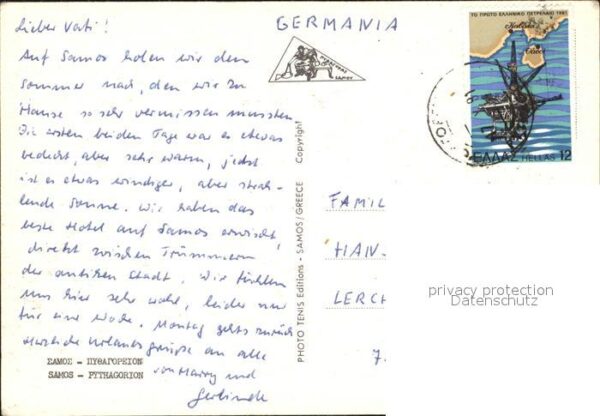 GERMANIA
Lieber Vati!
Auf Samos holen wir den
Sommer nach, den wir zu
Hause so sehr vermissen mussten.
Die ersten beiden Tage war es etwas
bedeckt, aber sehr warm, jetzt
ist es etwas windiger, aber strah-
lende Sonne. Wir haben das
beste Hotel auf Samos erwischt,
direkt zwischen Trümmern
der antiken Stadt. Wir fühlen
uns hier sehr wohl, leider nur
für eine Woche. Montag gehts zurück
Herzliche Urlaubsgrüsse an alle
von Harry und
Gerlinde
ΣΑΜΟΣ - ΠΥΘΑΓΟΡΕΙΟΝ
SAMOS - PYTHAGORION
PHOTO TENIS Editions - SAMOS/GREECE Copyright
SAMOS
ΤΟ ΠΡΩΤΟ ΕΛΛΗΝΙΚΟ ΠΕΤΡΕΛΑΙΟ 1981
ΕΛΛΑΣ HELLAS 12
FAMIL
HAN
LERCH
7.
privacy protection
Datenschutz